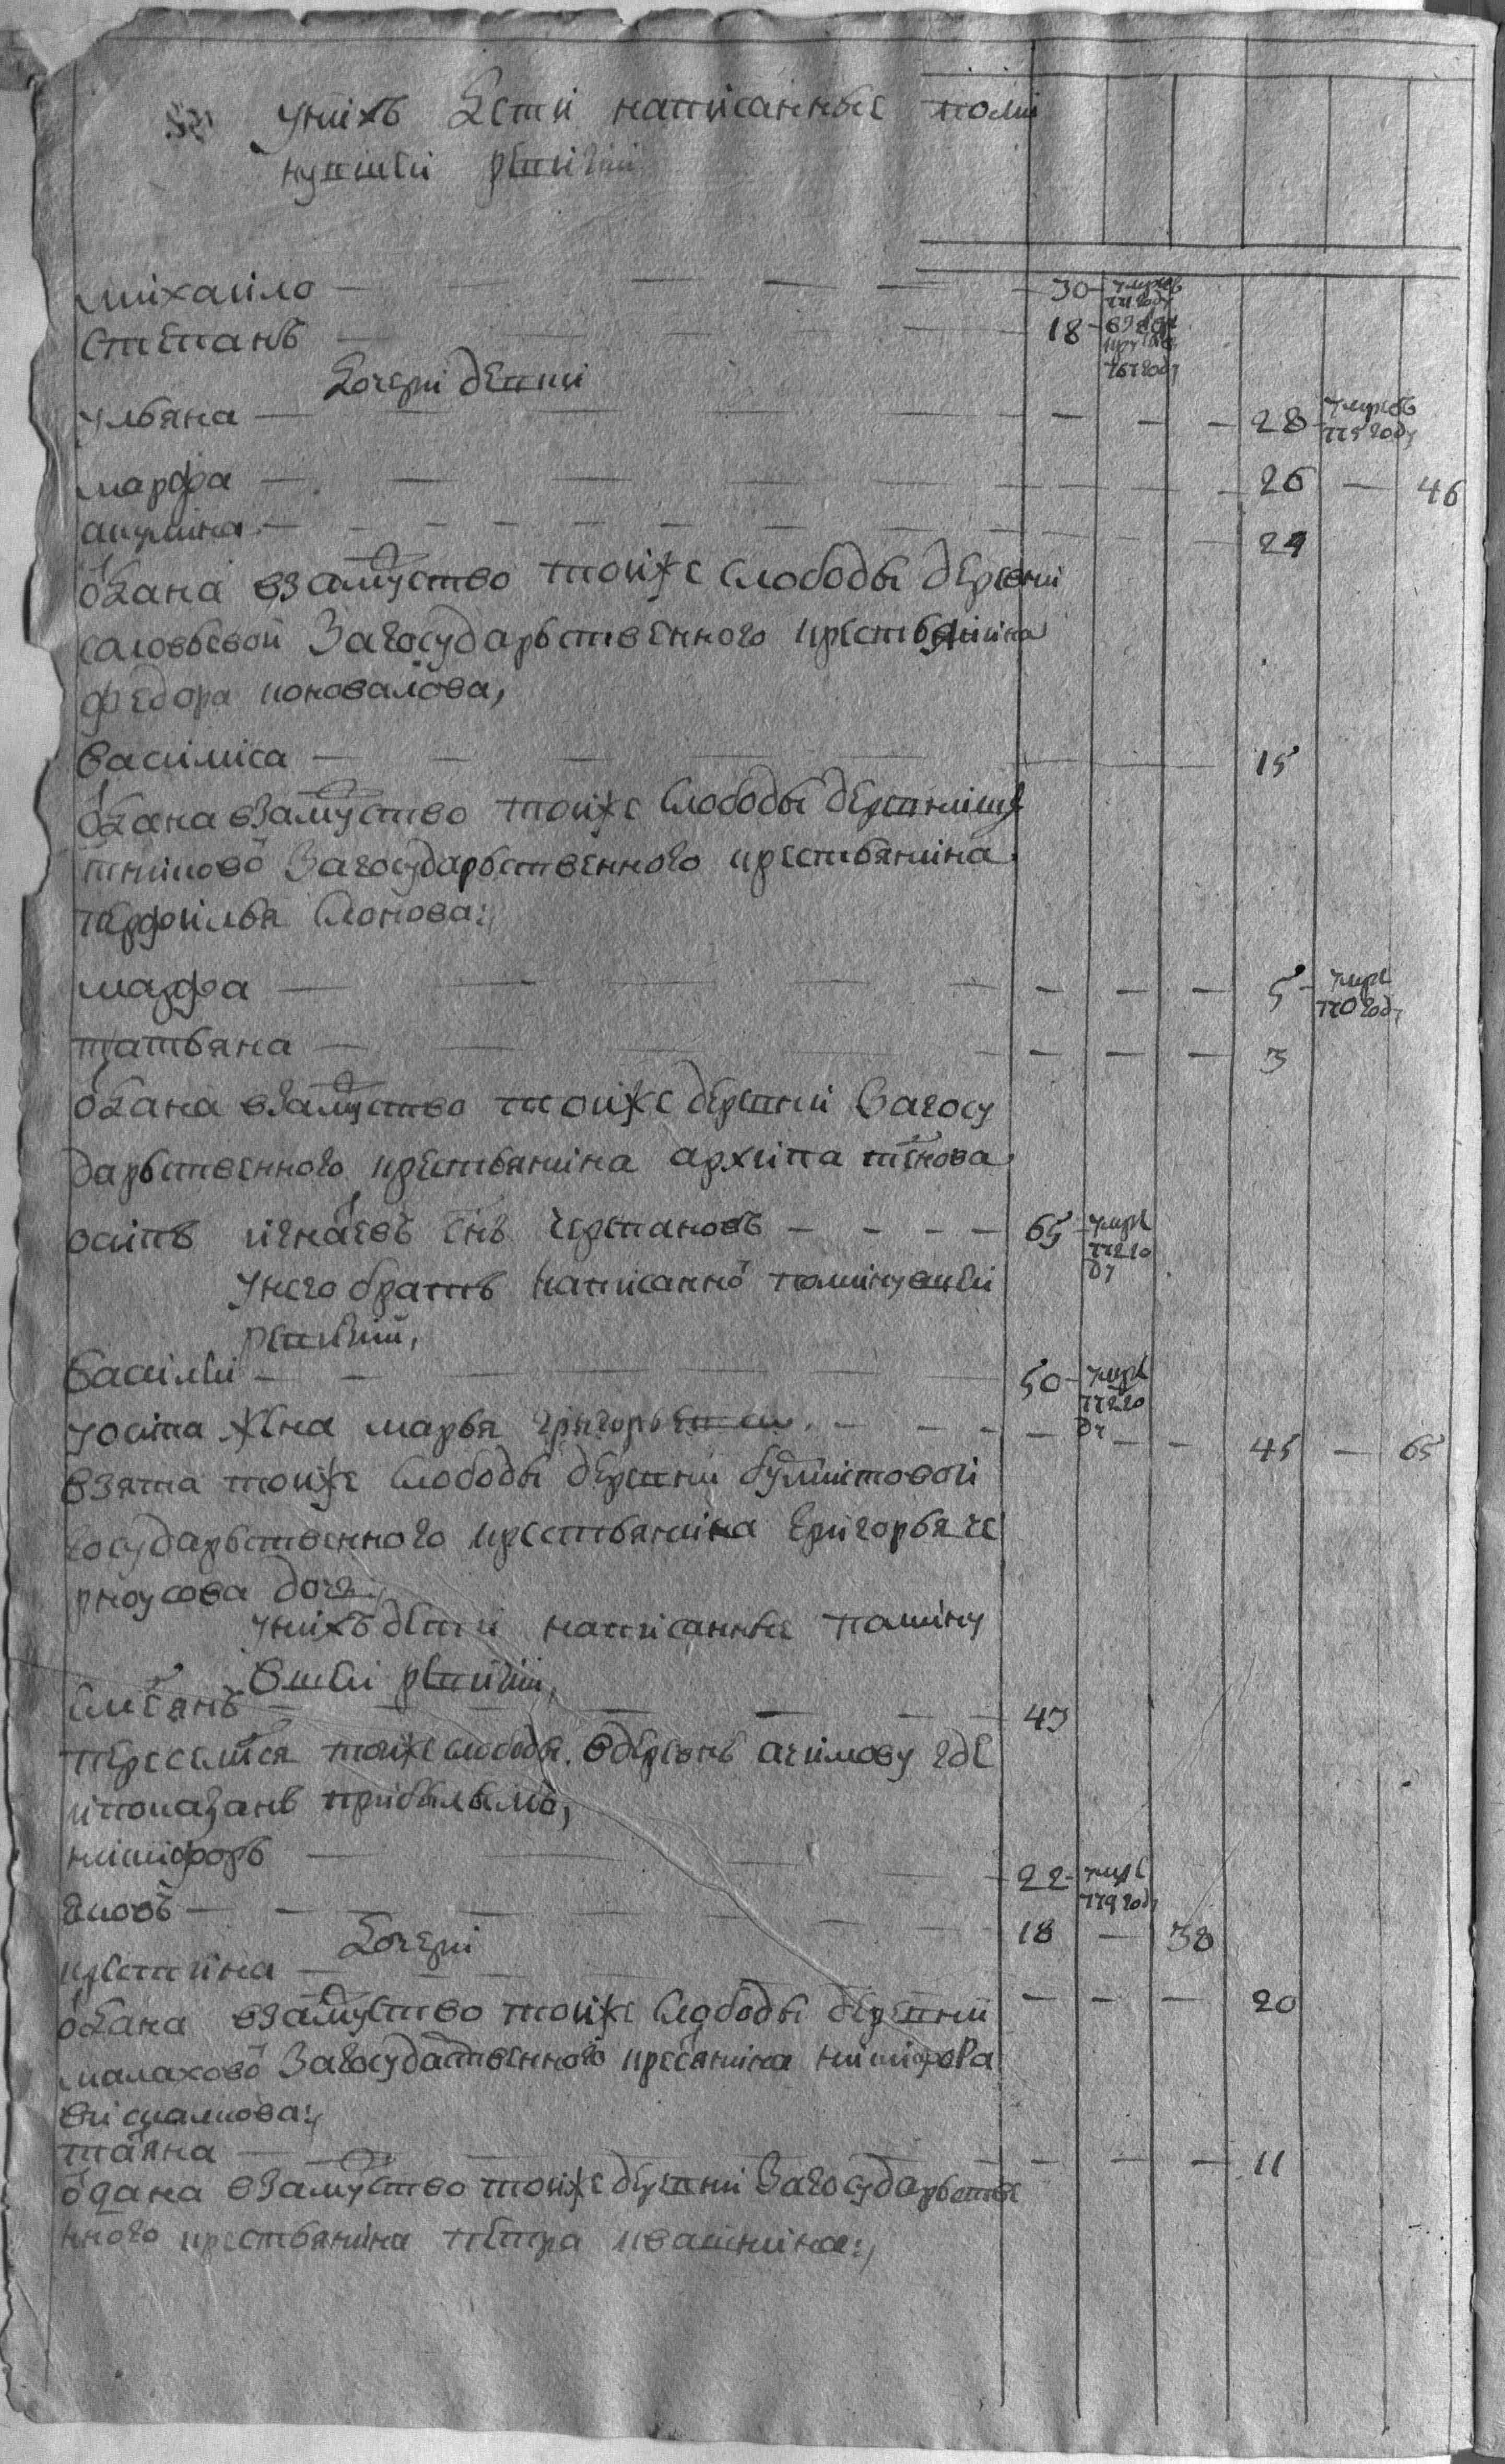 у нихъ дети написанные поми
нувшеи ревизии
михаило — 30 — умре въ
771 году
степанъ — 18 — в рекру
767 году
дочери девки
ульяна — — — 28 — умре въ
775 году
марфа — 26 — 46
акулина — 24
отдана взамуство тойже слободы деревни
саловьевой за государьственного крестьянина
федора коновалова,
василиса — 15
отдана взамуство тойже слободы деревни
за государьственного крестьянина
перфилья слонова:
марфа — — — 5 — умре
770 году
татьяна — — — 3
отдана взамуство тойже деревни за госу
дарьственного крестьянина архипа
осипъ игнатьевъ снъ черепановъ — 65 — умре
772 го
ду
у него братъ написанной поминувшеи
ревизии,
василеи — 50 — умре
772 го
ду
у осипа жена марья григорьева — — — 45 — 65
взята тойже слободы деревни
государьственного крестьянина григорья че
рноусова дочь
у нихъ дети написанные помину
вшеи ревизии,
емельянъ — 43
переселился тойже слободы в деревнъ акимову где
и показанъ прибылымъ,
никифоръ — 22 — умре
779 году
яковъ — 18 — 38
дочери
крестина — — — 20
отдана взамуство тойже слободы деревни
малаховой за государственного кресьянина никифора

татьяна — — — 11
отдана взамуство тойже деревни за государьстве
нного крестьянина петра квашнина: